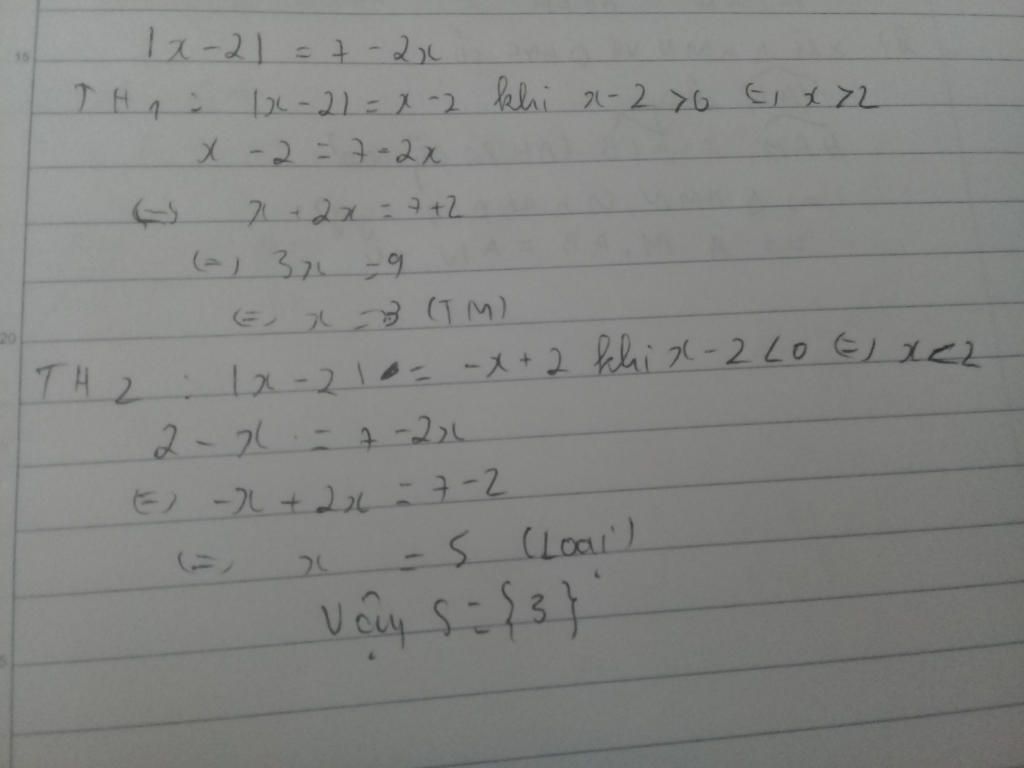 |x-2| = 7-2x
TH1: |x-2| = x-2 khi x-2>0 (=) x>2
x-2 = 7-2x
(=) x+2x = 7+2
(=) 3x = 9
(=) x = 3 (TM)
TH2: |x-2| = -x+2 khi x-2<0 (=) x<2
2-x = 7-2x
(=) -x+2x = 7-2
(=) x = 5 (Loại)
Vậy S = {3}